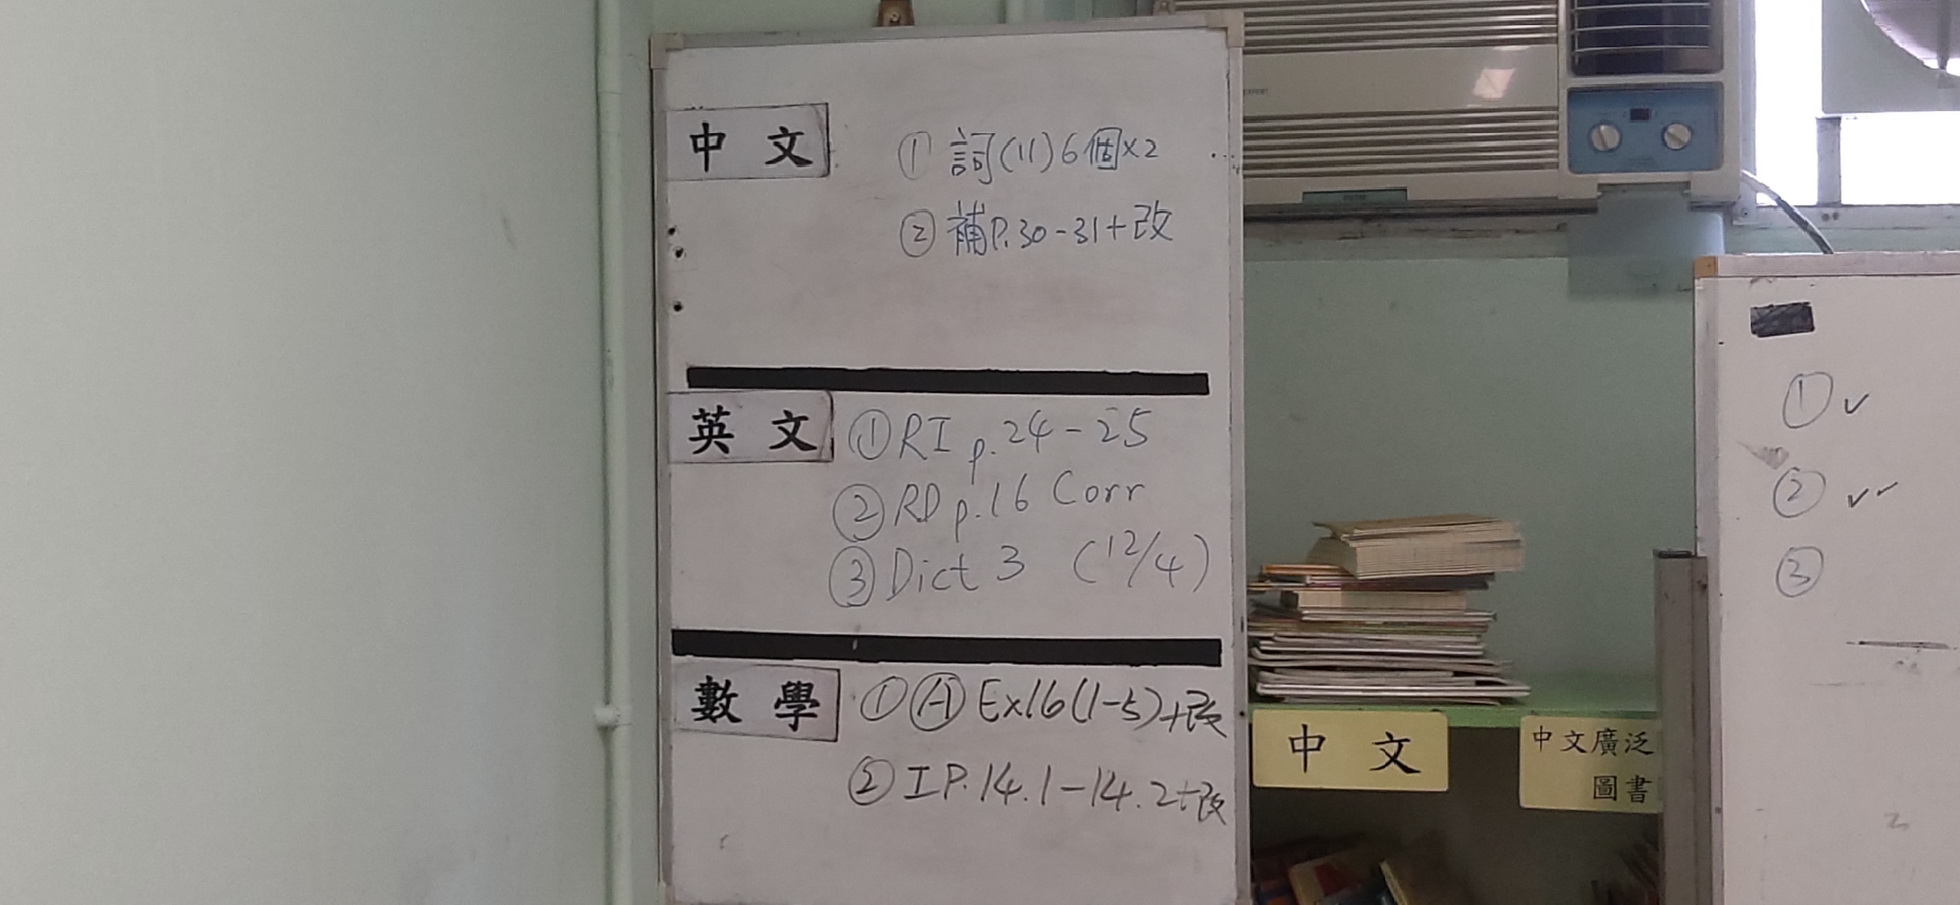 中文
① 詞(11)6個×2
② 補P.30-31+改
英文
① RI p.24-25
② RD p.16 Corr
③ Dict 3 (12/4)
數學
① Ⓐ Ex16(1-5)+改
② I P.14.1-14.2+改
① ✓
② ✓✓
③
中文
中文廣泛
圖書